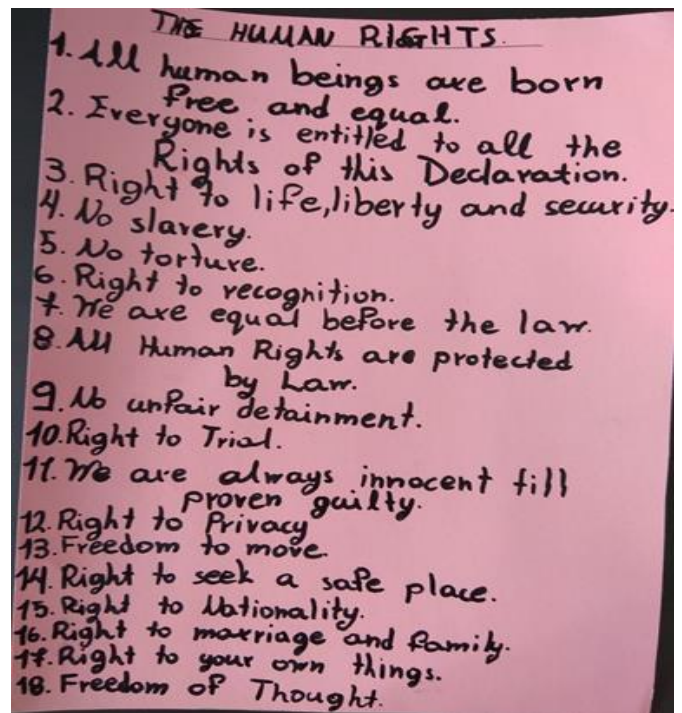 THE HUMAN RIGHTS.
1. All human beings are born
free and equal.
2. Everyone is entitled to all the
Rights of this Declaration.
3. Right to life, liberty and security.
4. No slavery.
5. No torture.
6. Right to recognition.
7. We are equal before the law.
8. All Human Rights are protected
by Law.
9. No unfair detainment.
10. Right to Trial.
11. We are always innocent till
proven guilty.
12. Right to Privacy
13. Freedom to move.
14. Right to seek a safe place.
15. Right to Nationality.
16. Right to marriage and family.
17. Right to your own things.
18. Freedom of Thought.